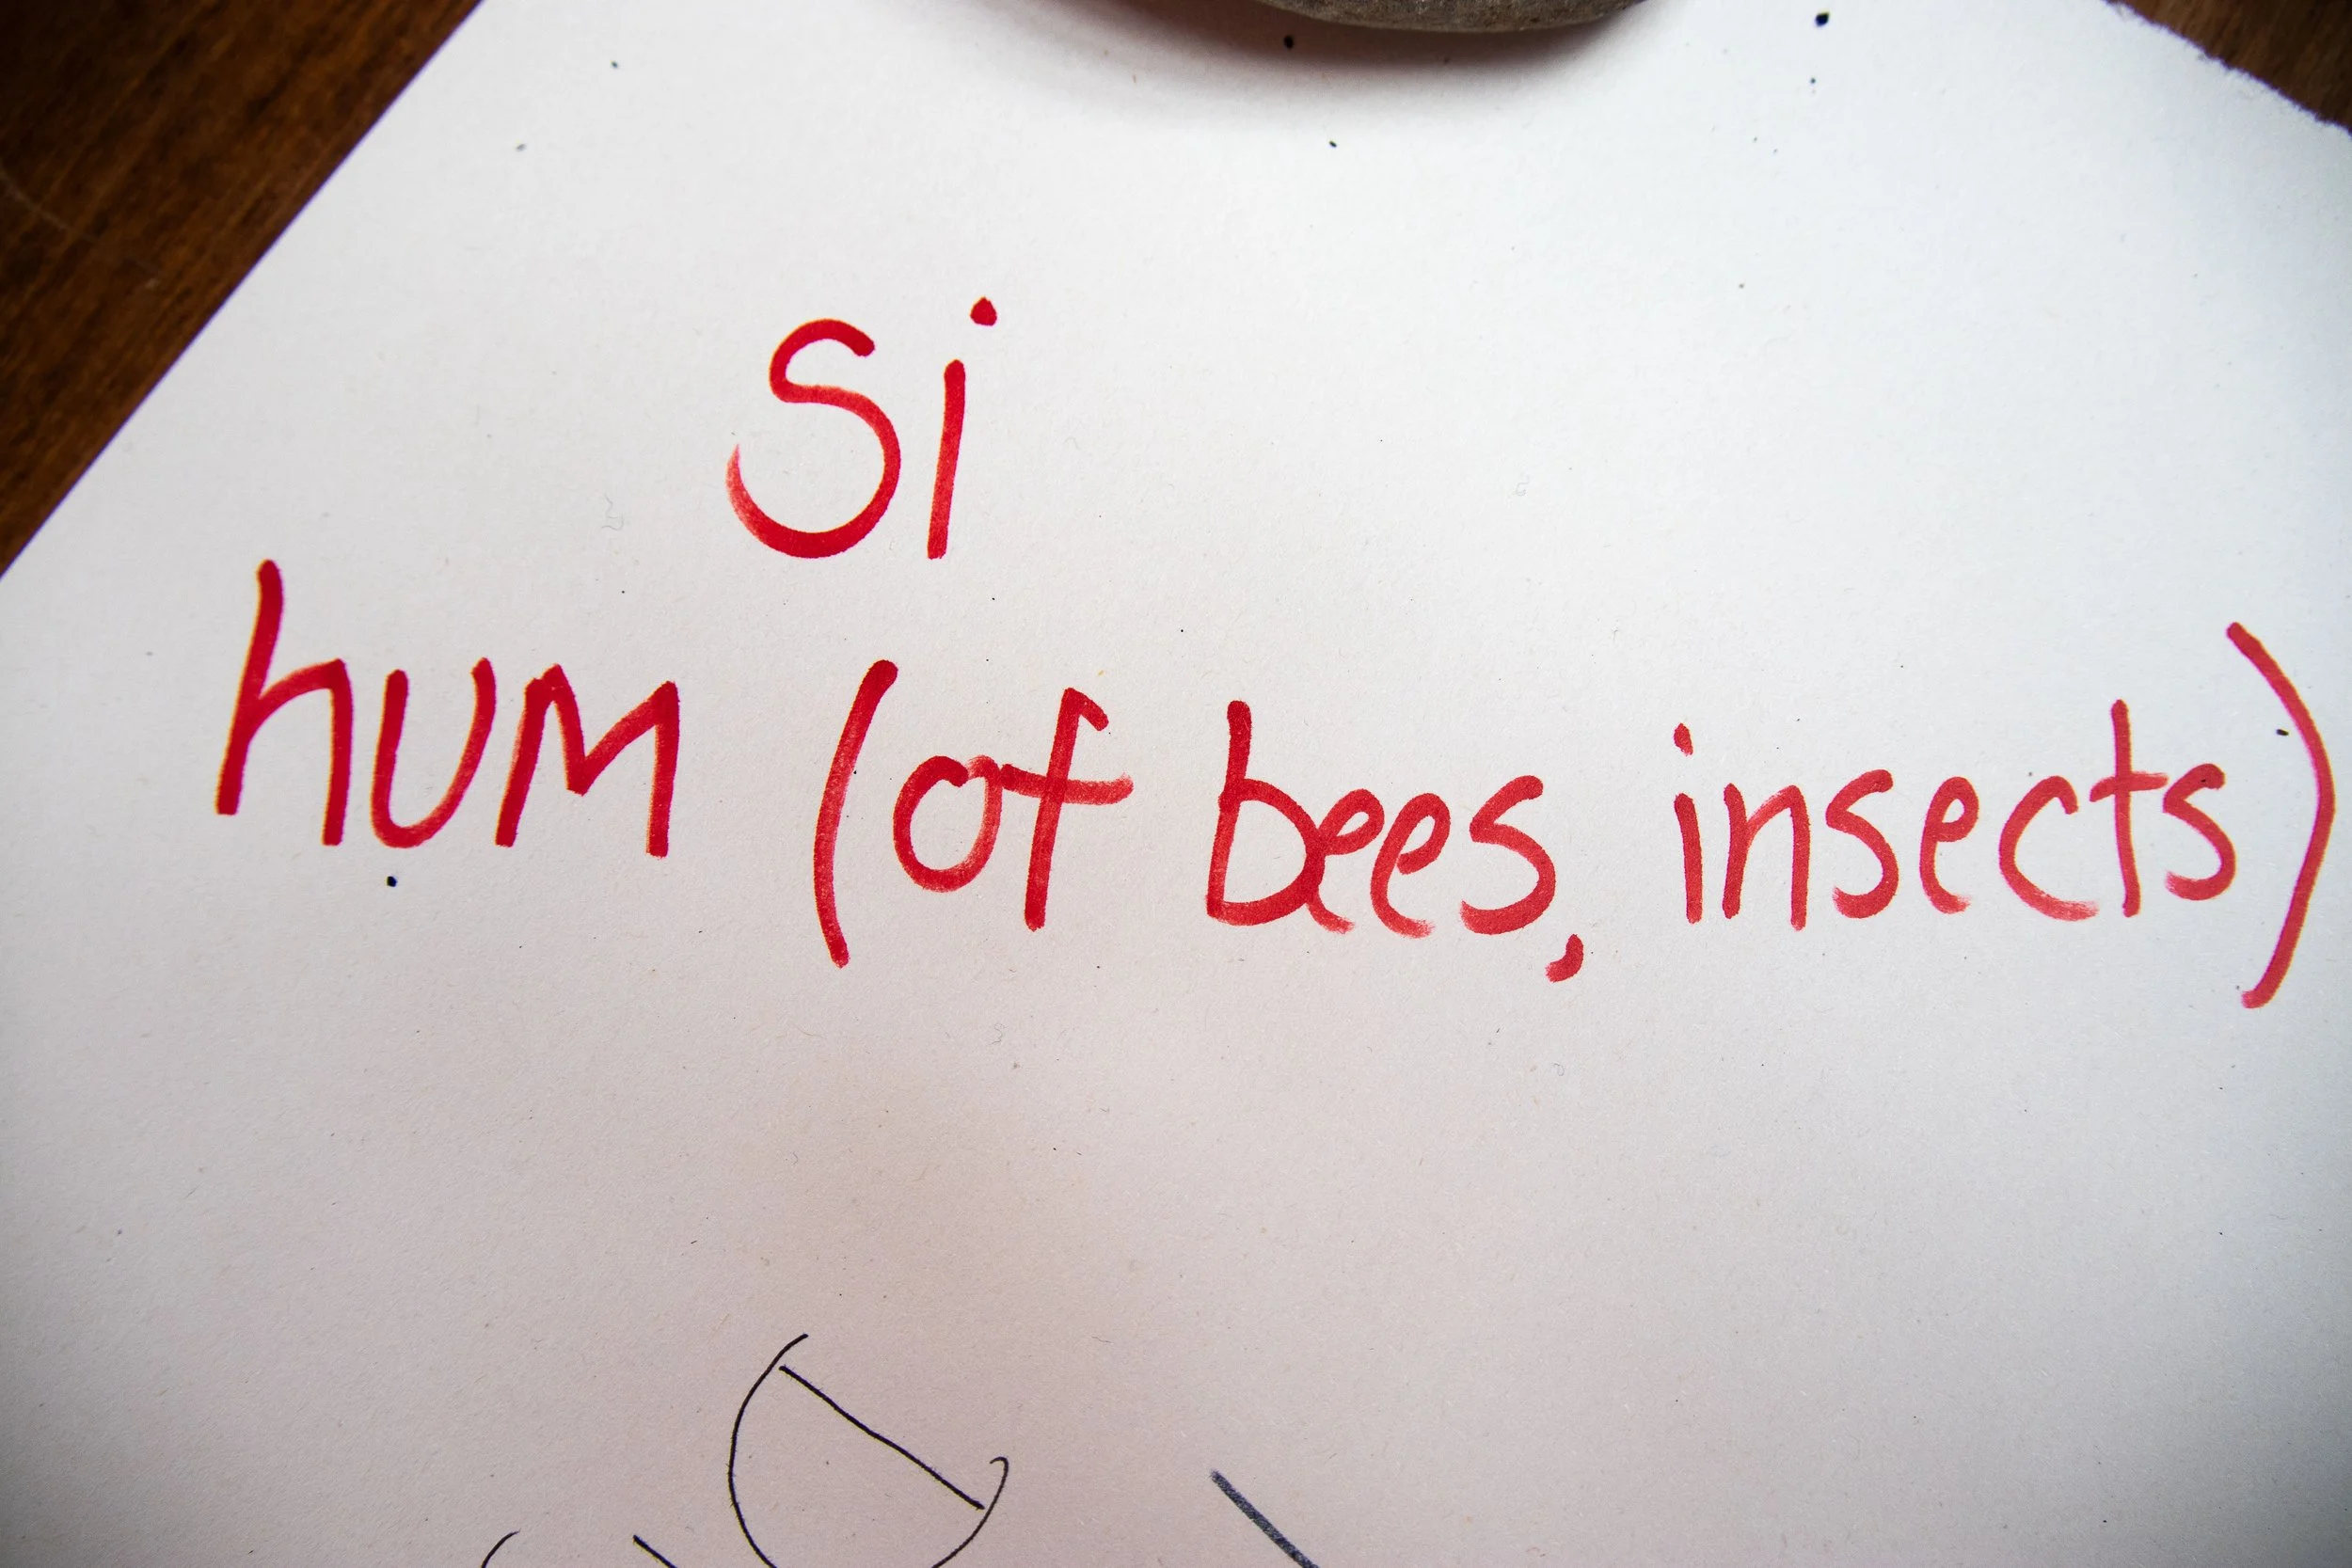 si
hum (of bees, insects)